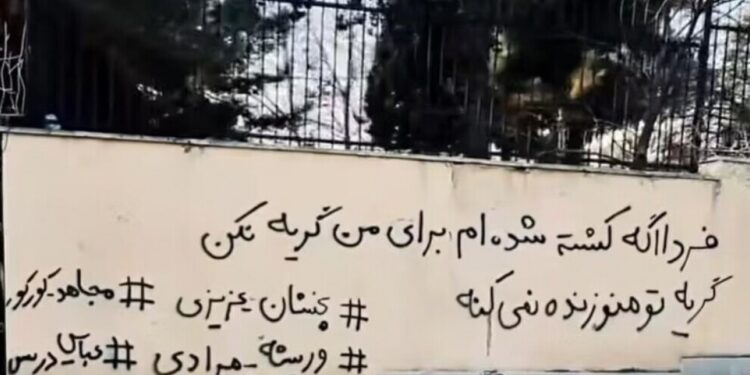 فردا اگه کشته شده ام برای من گریه نکن
گریه تو منو زنده نمی کنه
#پخشان_عزیزی #مجاهد_کورکور
#ورشته_مرادی #عباس_دریس